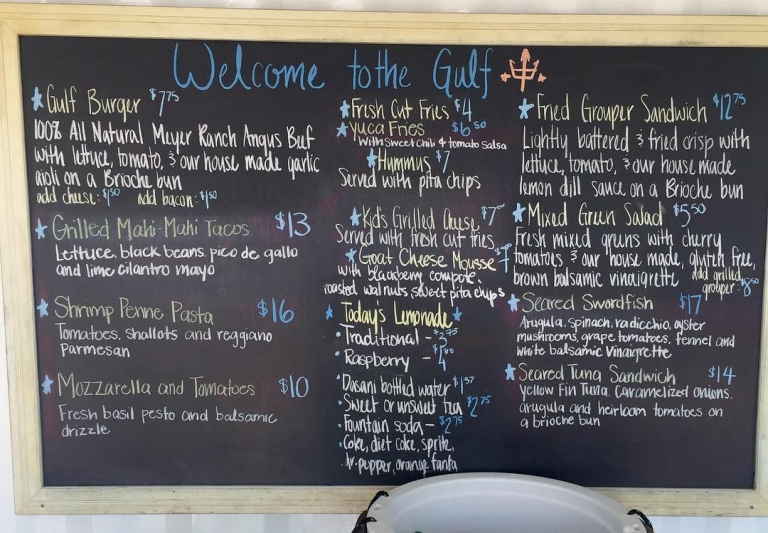 Welcome to the Gulf
Gulf Burger $7.75
100% All Natural Meyer Ranch Angus Beef
with lettuce, tomato, & our house made garlic
aioli on a Brioche bun
add cheese: $1.50 add bacon: $1.50
Grilled Mahi-Mahi Tacos $13
Lettuce, black beans, pico de gallo
and lime cilantro mayo
Shrimp Penne Pasta $16
Tomatoes, shallots and reggiano
Parmesan
Mozzarella and Tomatoes $10
Fresh basil pesto and balsamic
drizzle
Fresh Cut Fries $4
Yuca Fries $6.50
with sweet chili & tomato salsa
Hummus $7
Served with pita chips
Kid's Grilled Cheese $7
Served with fresh cut fries
Goat Cheese Mousse 7
with blackberry compote,
roasted walnuts, sweet pita chips
Today's Lemonade
Traditional - $3.75
Raspberry - 4
Dasani bottled water $1.37
Sweet or unsweet tea $2.75
Fountain soda - $2.75
Coke, diet coke, sprite,
dr. pepper, orange fanta
Fried Grouper Sandwich $12.75
Lightly battered & fried crisp with
lettuce, tomato, & our house made
lemon dill sauce on a Brioche bun
Mixed Green Salad $5.50
Fresh mixed greens with cherry
tomatoes & our house made, gluten free,
brown balsamic vinaigrette add grilled
grouper: $8.50
Seared Swordfish $17
Arugula, spinach, radicchio, oyster
mushrooms, grape tomatoes, fennel and
white balsamic vinaigrette
Seared Tuna Sandwich $14
Yellow Fin Tuna, Caramelized onions,
arugula and heirloom tomatoes on
a brioche bun